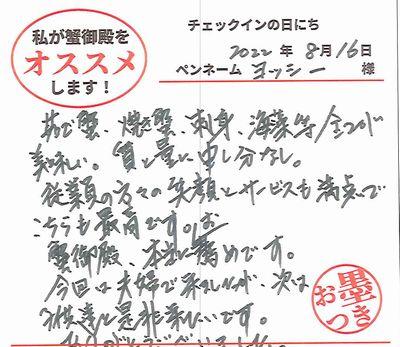 私が蟹御殿を
オススメ
します！
チェックインの日にち
2022年8月16日
ペンネーム ヨッシー 様
茹で蟹、焼き蟹、刺身、海藻等全てが
美味しい。質と量に申し分なし。
従業員の方々の笑顔とサービスも満点で
こちらも最高です。お
蟹御殿、本当に薦めです。
今回は夫婦で来ましたが、次は
子供達と是非来たいです。
ありがとうございました。
お墨つき